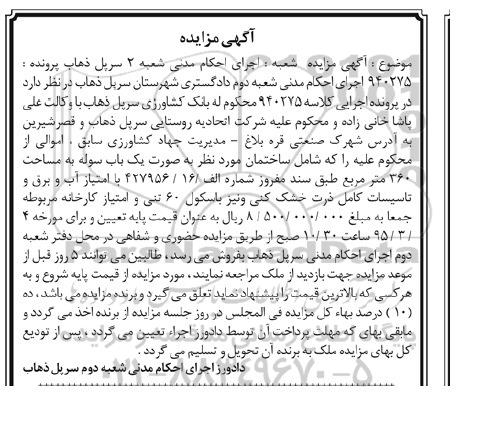 آگهی مزایده
موضوع : آگهی مزایده شعبه : اجرای احکام مدنی شعبه ۲ سرپل ذهاب پرونده :
۹۴۰۲۷۵ اجرای احکام مدنی شعبه دوم دادگستری شهرستان سرپل ذهاب در نظر دارد
در پرونده اجرایی کلاسه ۹۴۰۲۷۵ محکوم له بانک کشاورزی سرپل ذهاب با وکالت علی
پاشا خانی زاده و محکوم علیه شرکت اتحادیه روستایی سرپل ذهاب و قصرشیرین
به آدرس شهرک صنعتی قره بلاغ – مدیریت جهاد کشاورزی سابق ، اموالی از
محکوم علیه را که شامل ساختمان مورد نظر به صورت یک باب سوله به مساحت
۳۶۰ متر مربع طبق سند مفروز شماره الف /۱۶/ ۴۲۷۹۵۶ با امتیاز آب و برق و
تاسیسات کامل ذرت خشک کنی ونیز باسکول ۶۰ تنی و امتیاز کارخانه مربوطه
جمعا به مبلغ ۰۰۰/ ۰۰۰/ ۵۰۰/ ۸ ریال به عنوان قیمت پایه تعیین و برای مورخه ۴
/ ۳ / ۹۵ ساعت ۳۰/ ۱۰ صبح از طریق مزایده حضوری و شفاهی در محل دفتر شعبه
دوم اجرای احکام مدنی سرپل ذهاب بفروش می رسد، طالبین می توانند ۵ روز قبل از
موعد مزایده جهت بازدید از ملک مراجعه نمایند، مورد مزایده از قیمت پایه شروع و به
هرکسی که بالاترین قیمت را پیشنهاد نماید تعلق می گیرد و برنده مزایده می باشد ، ده
(۱۰ ) درصد بهاء کل مزایده فی المجلس در روز جلسه مزایده از برنده اخذ می گردد و
مابقی بهای که مهلت پرداخت آن توسط دادورز اجراء تعیین می گردد ، پس از تودیع
کل بهای مزایده ملک به برنده آن تحویل و تسلیم می گردد .
دادورز اجرای احکام مدنی شعبه دوم سرپل ذهاب
۰۲۱-۸۸۳۴۹۶۷۰-۵